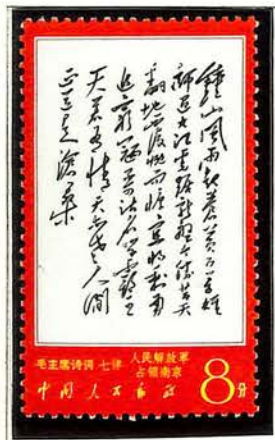 鍾山風雨起蒼黃百萬雄
師過大江虎踞龍盤今勝昔天
翻地覆慨而慷宜將剩勇
追窮寇不可沽名學霸王
天若有情天亦老人間
正道是滄桑
毛主席诗词 七律 人民解放军
占领南京
中国人民邮政 8分